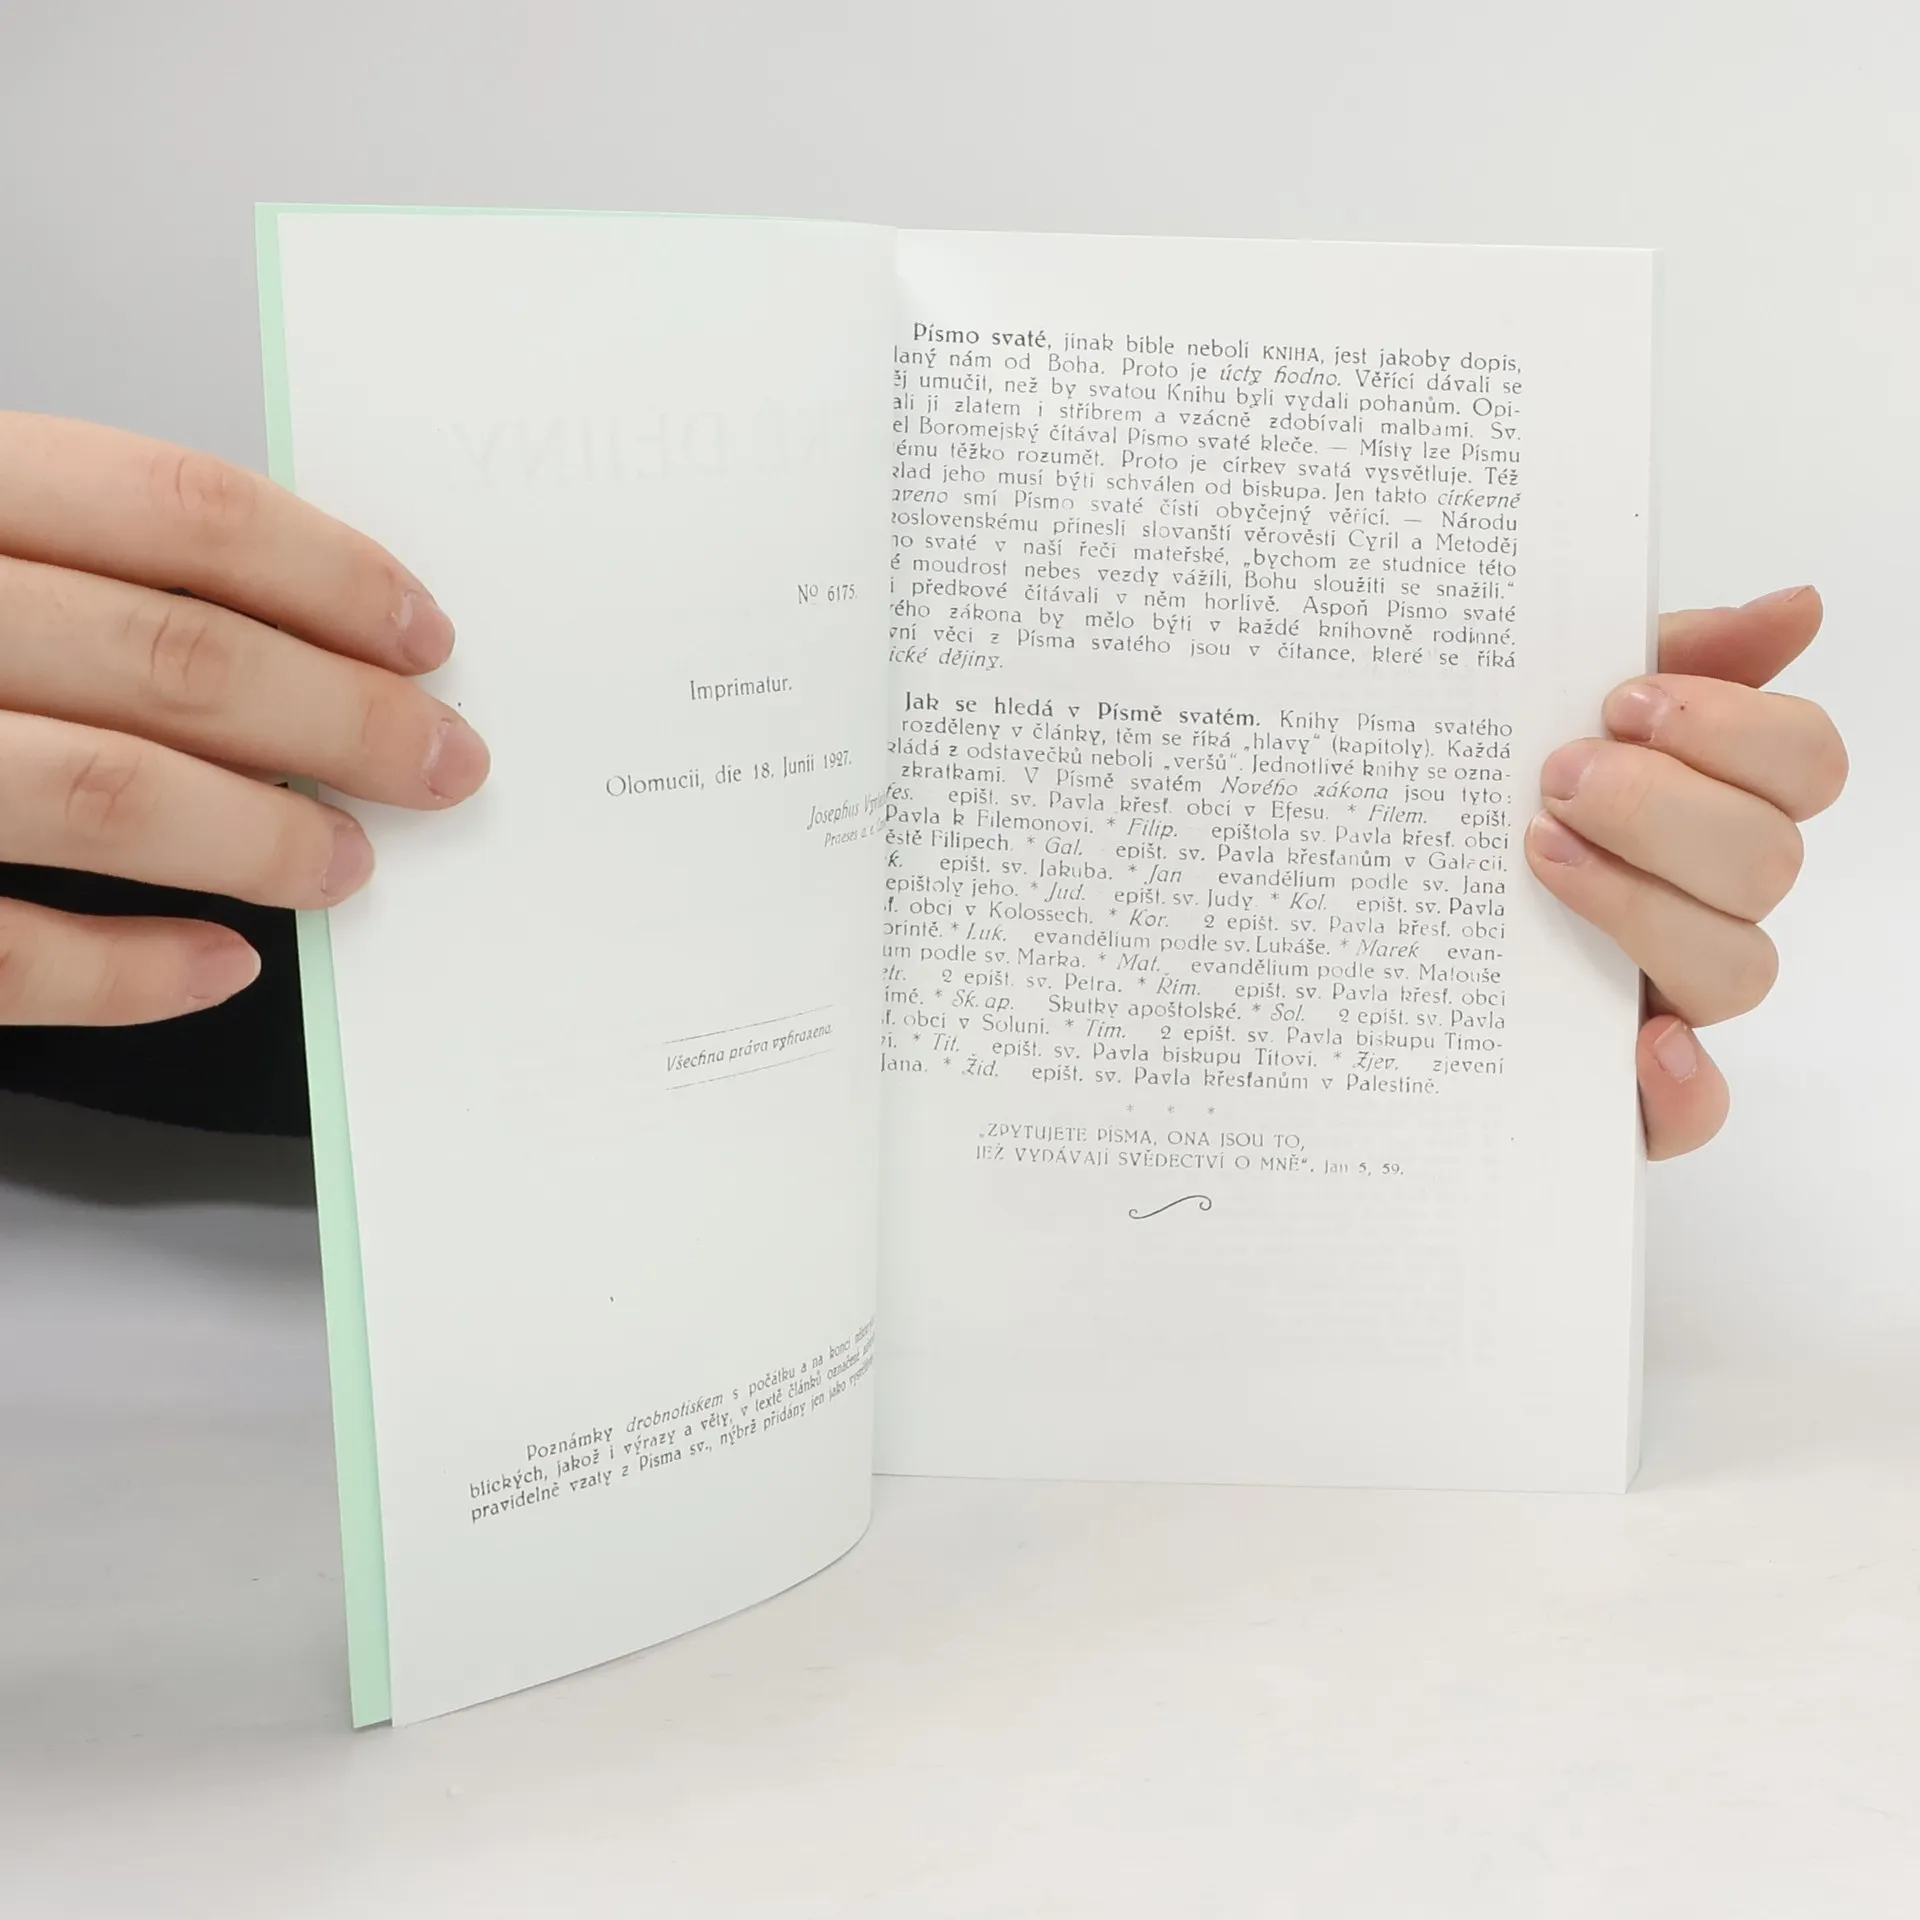 No 6175.
Imprimatur.
Olomucii, die 18. Junii 1927.
Josephus
Praeses a. e.
Všechna práva vyhrazena.
Poznámky drobnotiskem s počátku a na konci
blických, jakož i výrazy a věty, v textě článků označené
pravidelně vzaty z Písma sv., nýbrž přidány jen jako
Písmo svaté, jinak bible neboli KNIHA, jest jakoby dopis,
laný nám od Boha. Proto je úcty hodno. Věřící dávali se
ěj umučit, než by svatou Knihu byli vydali pohanům. Opi-
ali ji zlatem i stříbrem a vzácně zdobívali malbami. Sv.
el Boromejský čítával Písmo svaté kleče. — Místy lze Písmu
ému těžko rozumět. Proto je církev svatá vysvětluje. Též
klad jeho musí býti schválen od biskupa. Jen takto církevně
aveno smí Písmo svaté čísti obyčejný věřící. — Národu
koslovenskému přinesli slovanští věrověsti Cyril a Metoděj
no svaté v naší řeči mateřské, „bychom ze studnice této
é moudrost nebes vezdy vážili, Bohu sloužiti se snažili.“
i předkové čítávali v něm horlivě. Aspoň Písmo svaté
rého zákona by mělo býti v každé knihovně rodinné.
vní věci z Písma svatého jsou v čítance, které se říká
ické dějiny.
Jak se hledá v Písmě svatém. Knihy Písma svatého
rozděleny v články, těm se říká „hlavy“ (kapitoly). Každá
kládá z odstavečků neboli „veršů“. Jednotlivé knihy se ozna-
zkratkami. V Písmě svatém Nového zákona jsou tyto:
fes. epišt. sv. Pavla křesť. obci v Efesu. * Filem. epišt.
Pavla k Filemonovi. * Filip. epištola sv. Pavla křesť. obci
ěstě Filipech. * Gal. epišt. sv. Pavla křesťanům v Galacii.
k. epišt. sv. Jakuba. * Jan evandělium podle sv. Jana
epištoly jeho. * Jud. epišt. sv. Judy. * Kol. epišt. sv. Pavla
ť. obci v Kolossech. * Kor. 2 epišt. sv. Pavla křesť. obci
orintě. * Luk. evandělium podle sv. Lukáše. * Marek evan-
um podle sv. Marka. * Mat. evandělium podle sv. Matouše
etr. 2 epišt. sv. Petra. * Řím. epišt. sv. Pavla křesť. obci
ímě. * Sk. ap. Skutky apoštolské. * Sol. 2 epišt. sv. Pavla
ť. obci v Soluni. * Tim. 2 epišt. sv. Pavla biskupu Timo-
vi. * Tit. epišt. sv. Pavla biskupu Titovi. * Zjev. zjevení
Jana. * Žid. epišt. sv. Pavla křesťanům v Palestině.
* * *
„ZPYTUJETE PÍSMA, ONA JSOU TO,
JEŽ VYDÁVAJÍ SVĚDECTVÍ O MNĚ“. Jan 5, 59.